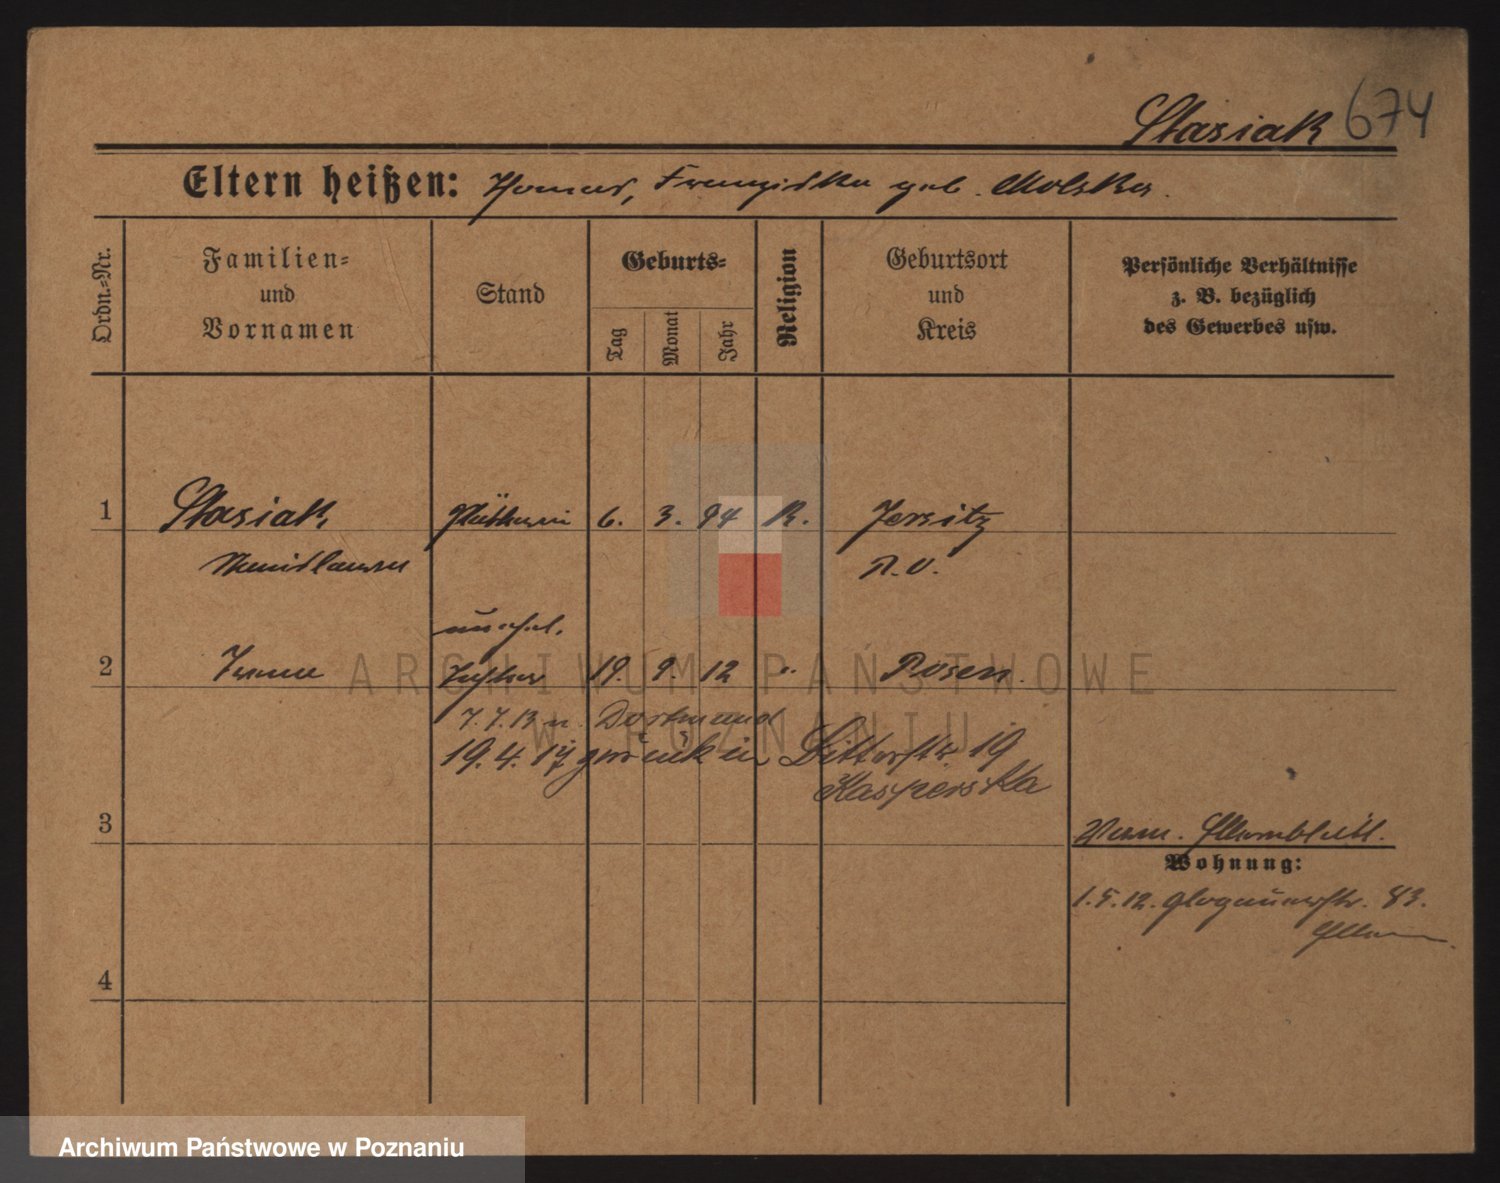 Stasiak 674
Eltern heißen: Thomas, Franziska geb. Molska.
Ordn.-Nr.
Familien-
und
Vornamen
Stand
Geburts-
Tag
Monat
Jahr
Religion
Geburtsort
und
Kreis
Persönliche Verhältnisse
z. B. bezüglich
des Gewerbes usw.
1 Stasiak, Plätterin 6. 3. 94 K. Jersitz
Stanislawa P. O.
unehel.
2 Irene Tochter 19. 9. 12 " Posen.
7.7.13 n. Dortmund
19.4.17 zurück in 19
Kasperska
3
Wohnung:
1.5.12. Glogauerstr. 83.
4
ARCHIWUM PAŃSTWOWE
W POZNANIU
Archiwum Państwowe w Poznaniu